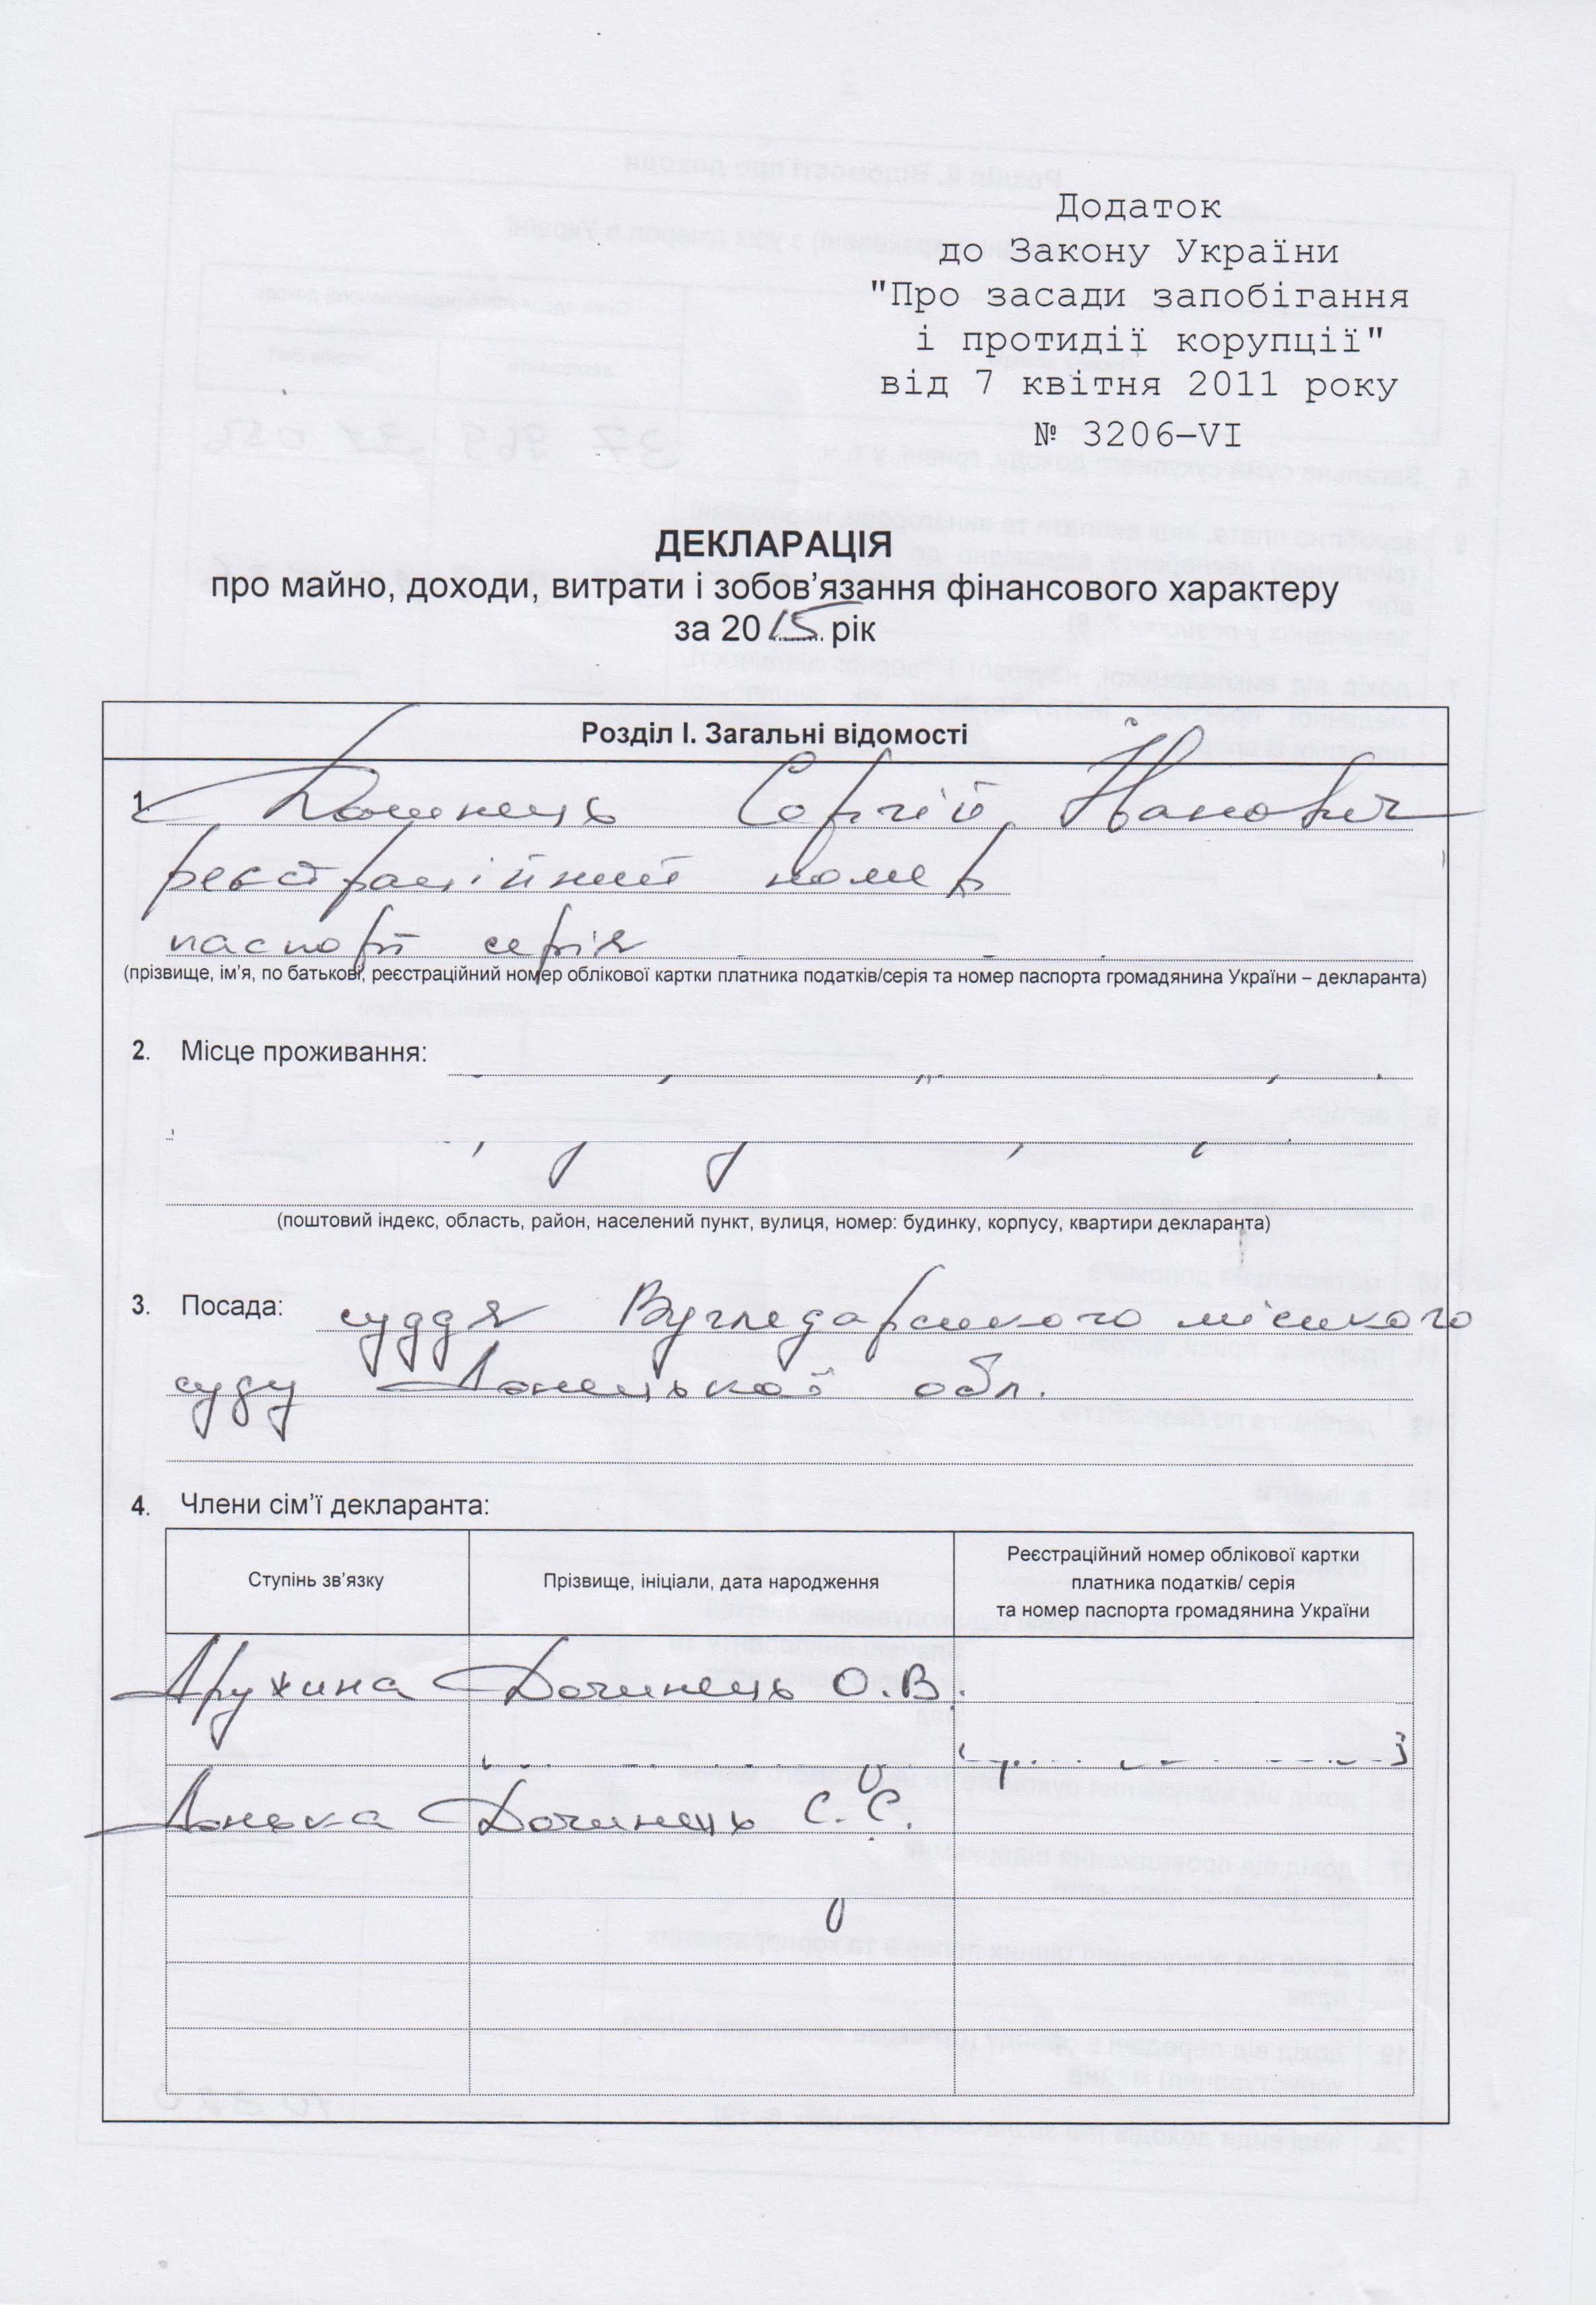 Додаток
до Закону України
"Про засади запобігання
і протидії корупції"
від 7 квітня 2011 року
№ 3206–VI
ДЕКЛАРАЦІЯ
про майно, доходи, витрати і зобов’язання фінансового характеру
за 2015 рік
Розділ І. Загальні відомості
1. Дочинець Сергій Іванович
реєстраційний номер
паспорт серія
(прізвище, ім’я, по батькові, реєстраційний номер облікової картки платника податків/серія та номер паспорта громадянина України – декларанта)
2. Місце проживання:
(поштовий індекс, область, район, населений пункт, вулиця, номер: будинку, корпусу, квартири декларанта)
3. Посада: суддя Вугледарського міського
суду Донецької обл.
4. Члени сім’ї декларанта:
Ступінь зв’язку
Прізвище, ініціали, дата народження
Реєстраційний номер облікової картки
платника податків/ серія
та номер паспорта громадянина України
Дружина Дочинець О.В.
Донька Дочинець С.С.